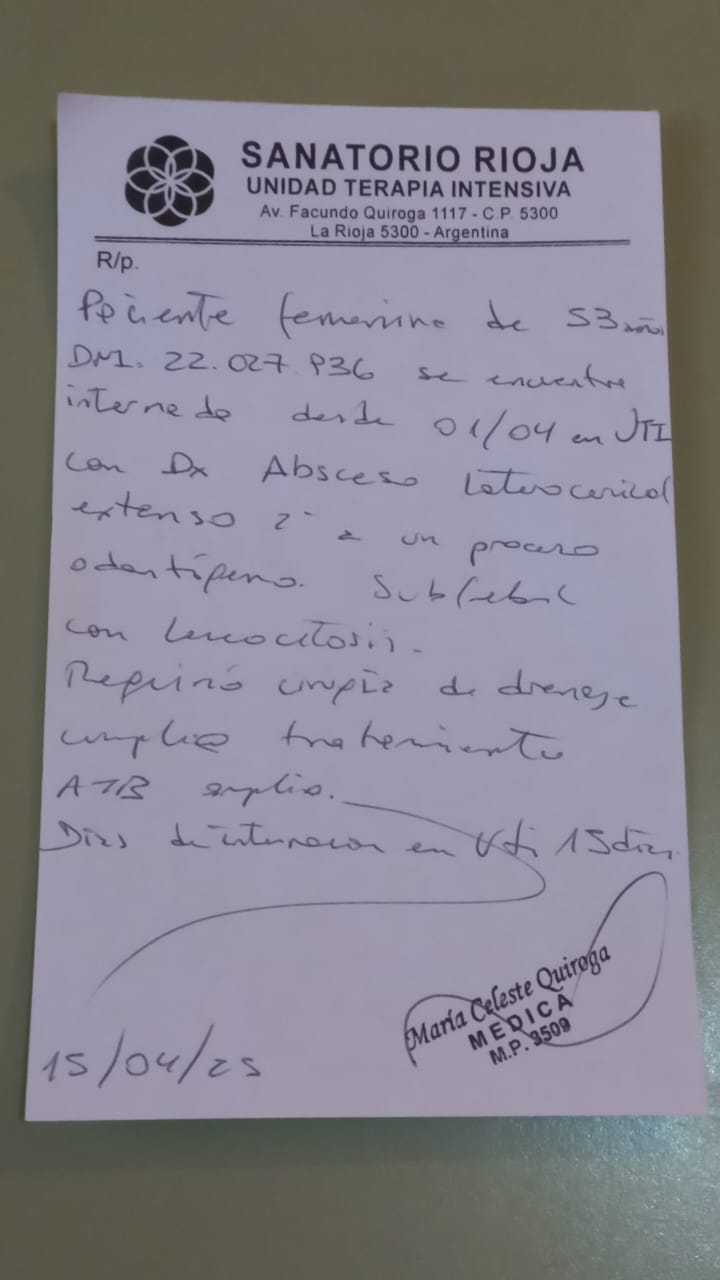 SANATORIO RIOJA
UNIDAD TERAPIA INTENSIVA
Av. Facundo Quiroga 1117 - C.P. 5300
La Rioja 5300 - Argentina
R/p.
Paciente femenina de 53 años
DNI. 22.027.936 se encuentra
internada desde 01/04 en UTI
con Dx Absceso Laterocervical
extenso 2° a un proceso
odontógeno. Subfebril
con leucocitosis.
Requirió cirugía de drenaje
cumplió tratamiento
ATB amplio.
Días de internacion en Uti 15 días
María Celeste Quiroga
MEDICA
M.P. 3509
15/04/25